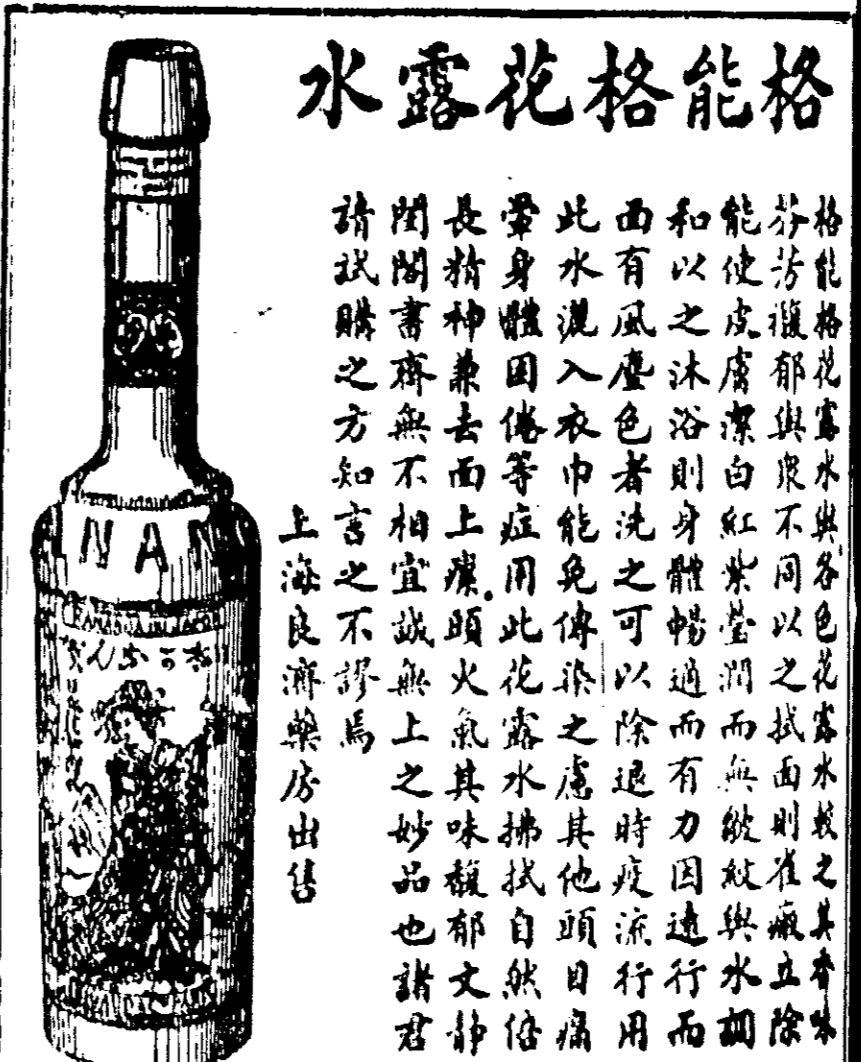 格能格花露水
格能格花露水與各色花露水較之其香味
芬芳馥郁與衆不同以之拭面則雀瘢立除
能使皮膚潔白紅紫瑩潤而無皺紋與水調
和以之沐浴則身體暢適而有力因遠行而
面有風塵色者洗之可以除退時疫流行用
此水灑入衣巾能免傳染之慮其他頭目痛
暈身體困倦等症用此花露水拂拭自然倍
長精神兼去面上瘰頭火氣其味馥郁文静
閨閣書齋無不相宜誠無上之妙品也諸君
請試購之方知言之不謬焉
上海良濟藥房出售
NAN